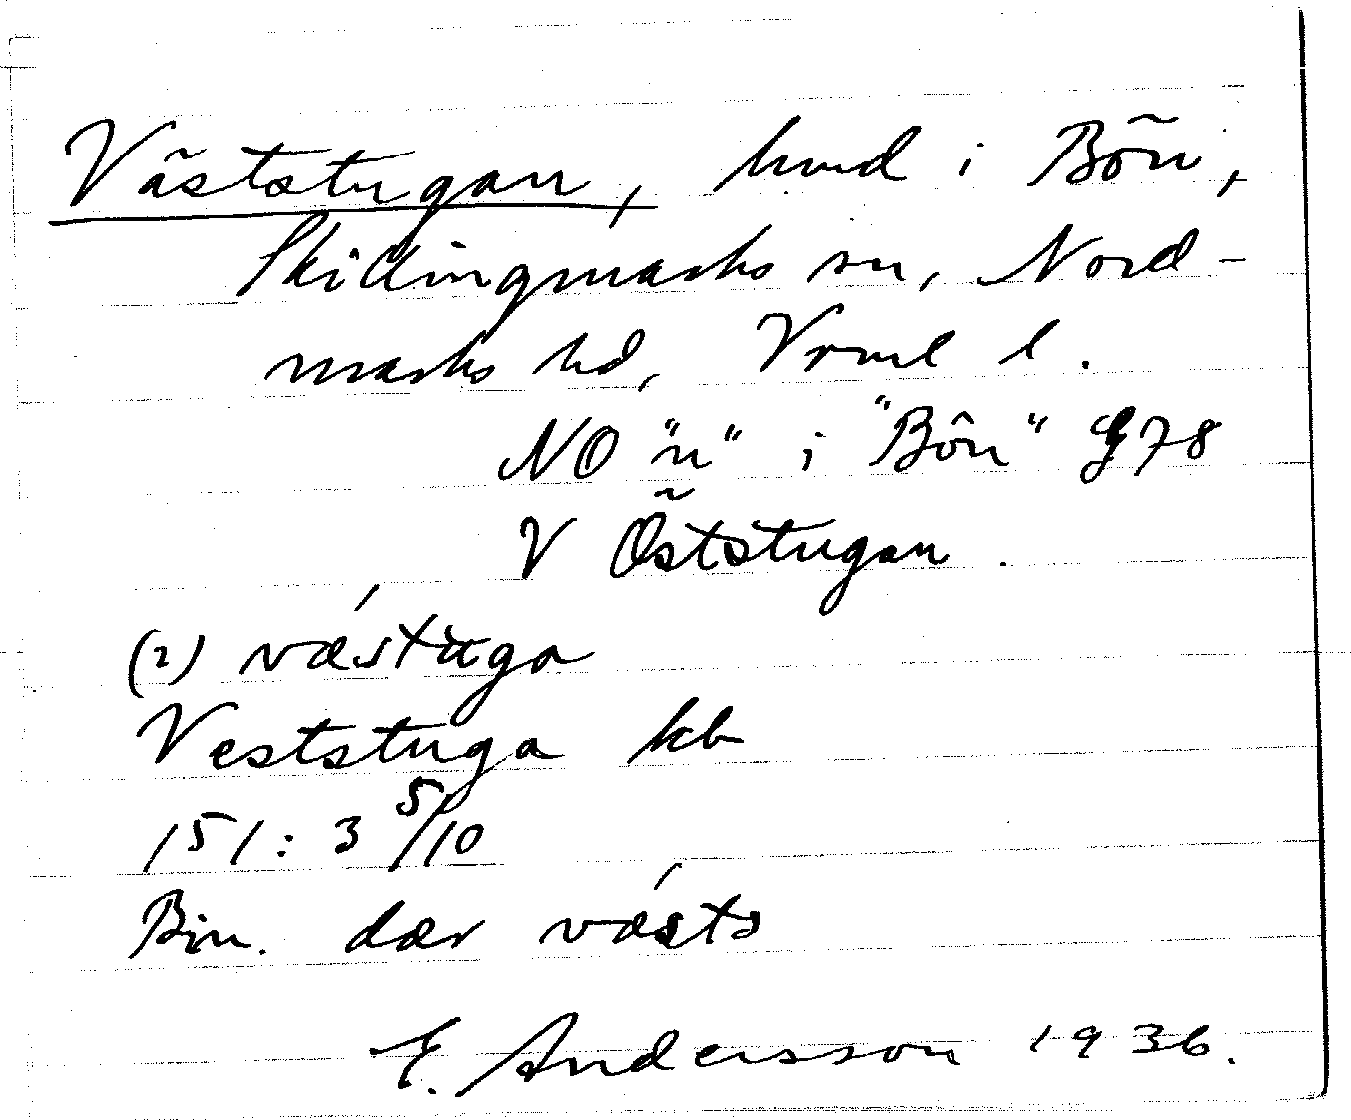 Väststugan, hmd i Bön,
Skillingmarks sn, Nord-
marks hd, Vrml l.
NO "n" i "Bôn" G78
V Öststugan.
(2) væstuga
Veststuga kb
151:3 5/10
Bin. dær væsts
E. Andersson 1936.